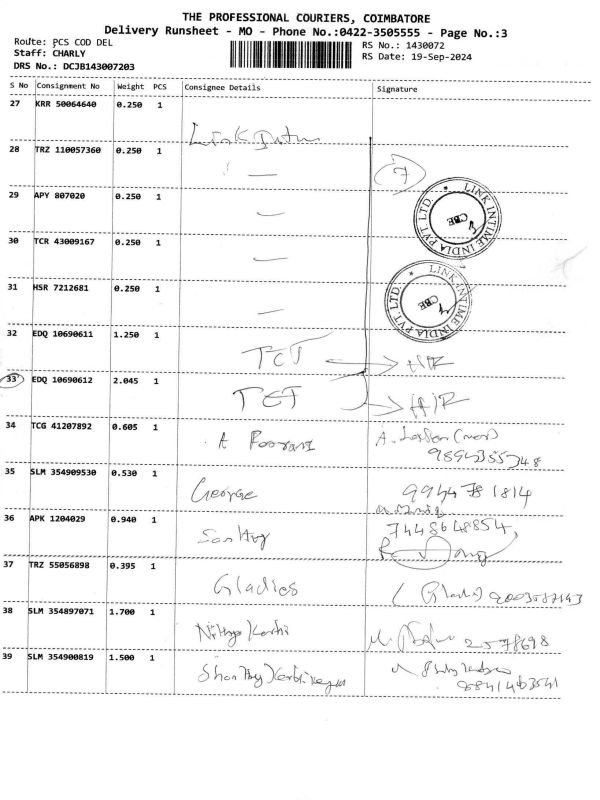 THE PROFESSIONAL COURIERS, COIMBATORE
Delivery Runsheet - MO - Phone No.:0422-3505555 - Page No.:3
Route: PCS COD DEL
RS No.: 1430072
Staff: CHARLY
RS Date: 19-Sep-2024
DRS No.: DCJB143007203
S No Consignment No Weight PCS Consignee Details Signature
27 KRR 50064640 0.250 1 Link
28 TRZ 110057360 0.250 1 7
29 APY 807020 0.250 1
LINK INTIME INDIA PVT. LTD. CBE
30 TCR 43009167 0.250 1
31 HSR 7212681 0.250 1
LINK INTIME INDIA PVT. LTD. CBE
32 EDQ 10690611 1.250 1 TCT
33 EDQ 10690612 2.045 1 TCT
34 TCG 41207892 0.605 1 A
35 SLM 354909530 0.530 1 George 9944781814
36 APK 1204029 0.940 1 7448648854,
37 TRZ 55056898 0.395 1 Gladies
38 SLM 354897071 1.700 1 2578698
39 SLM 354900819 1.500 1